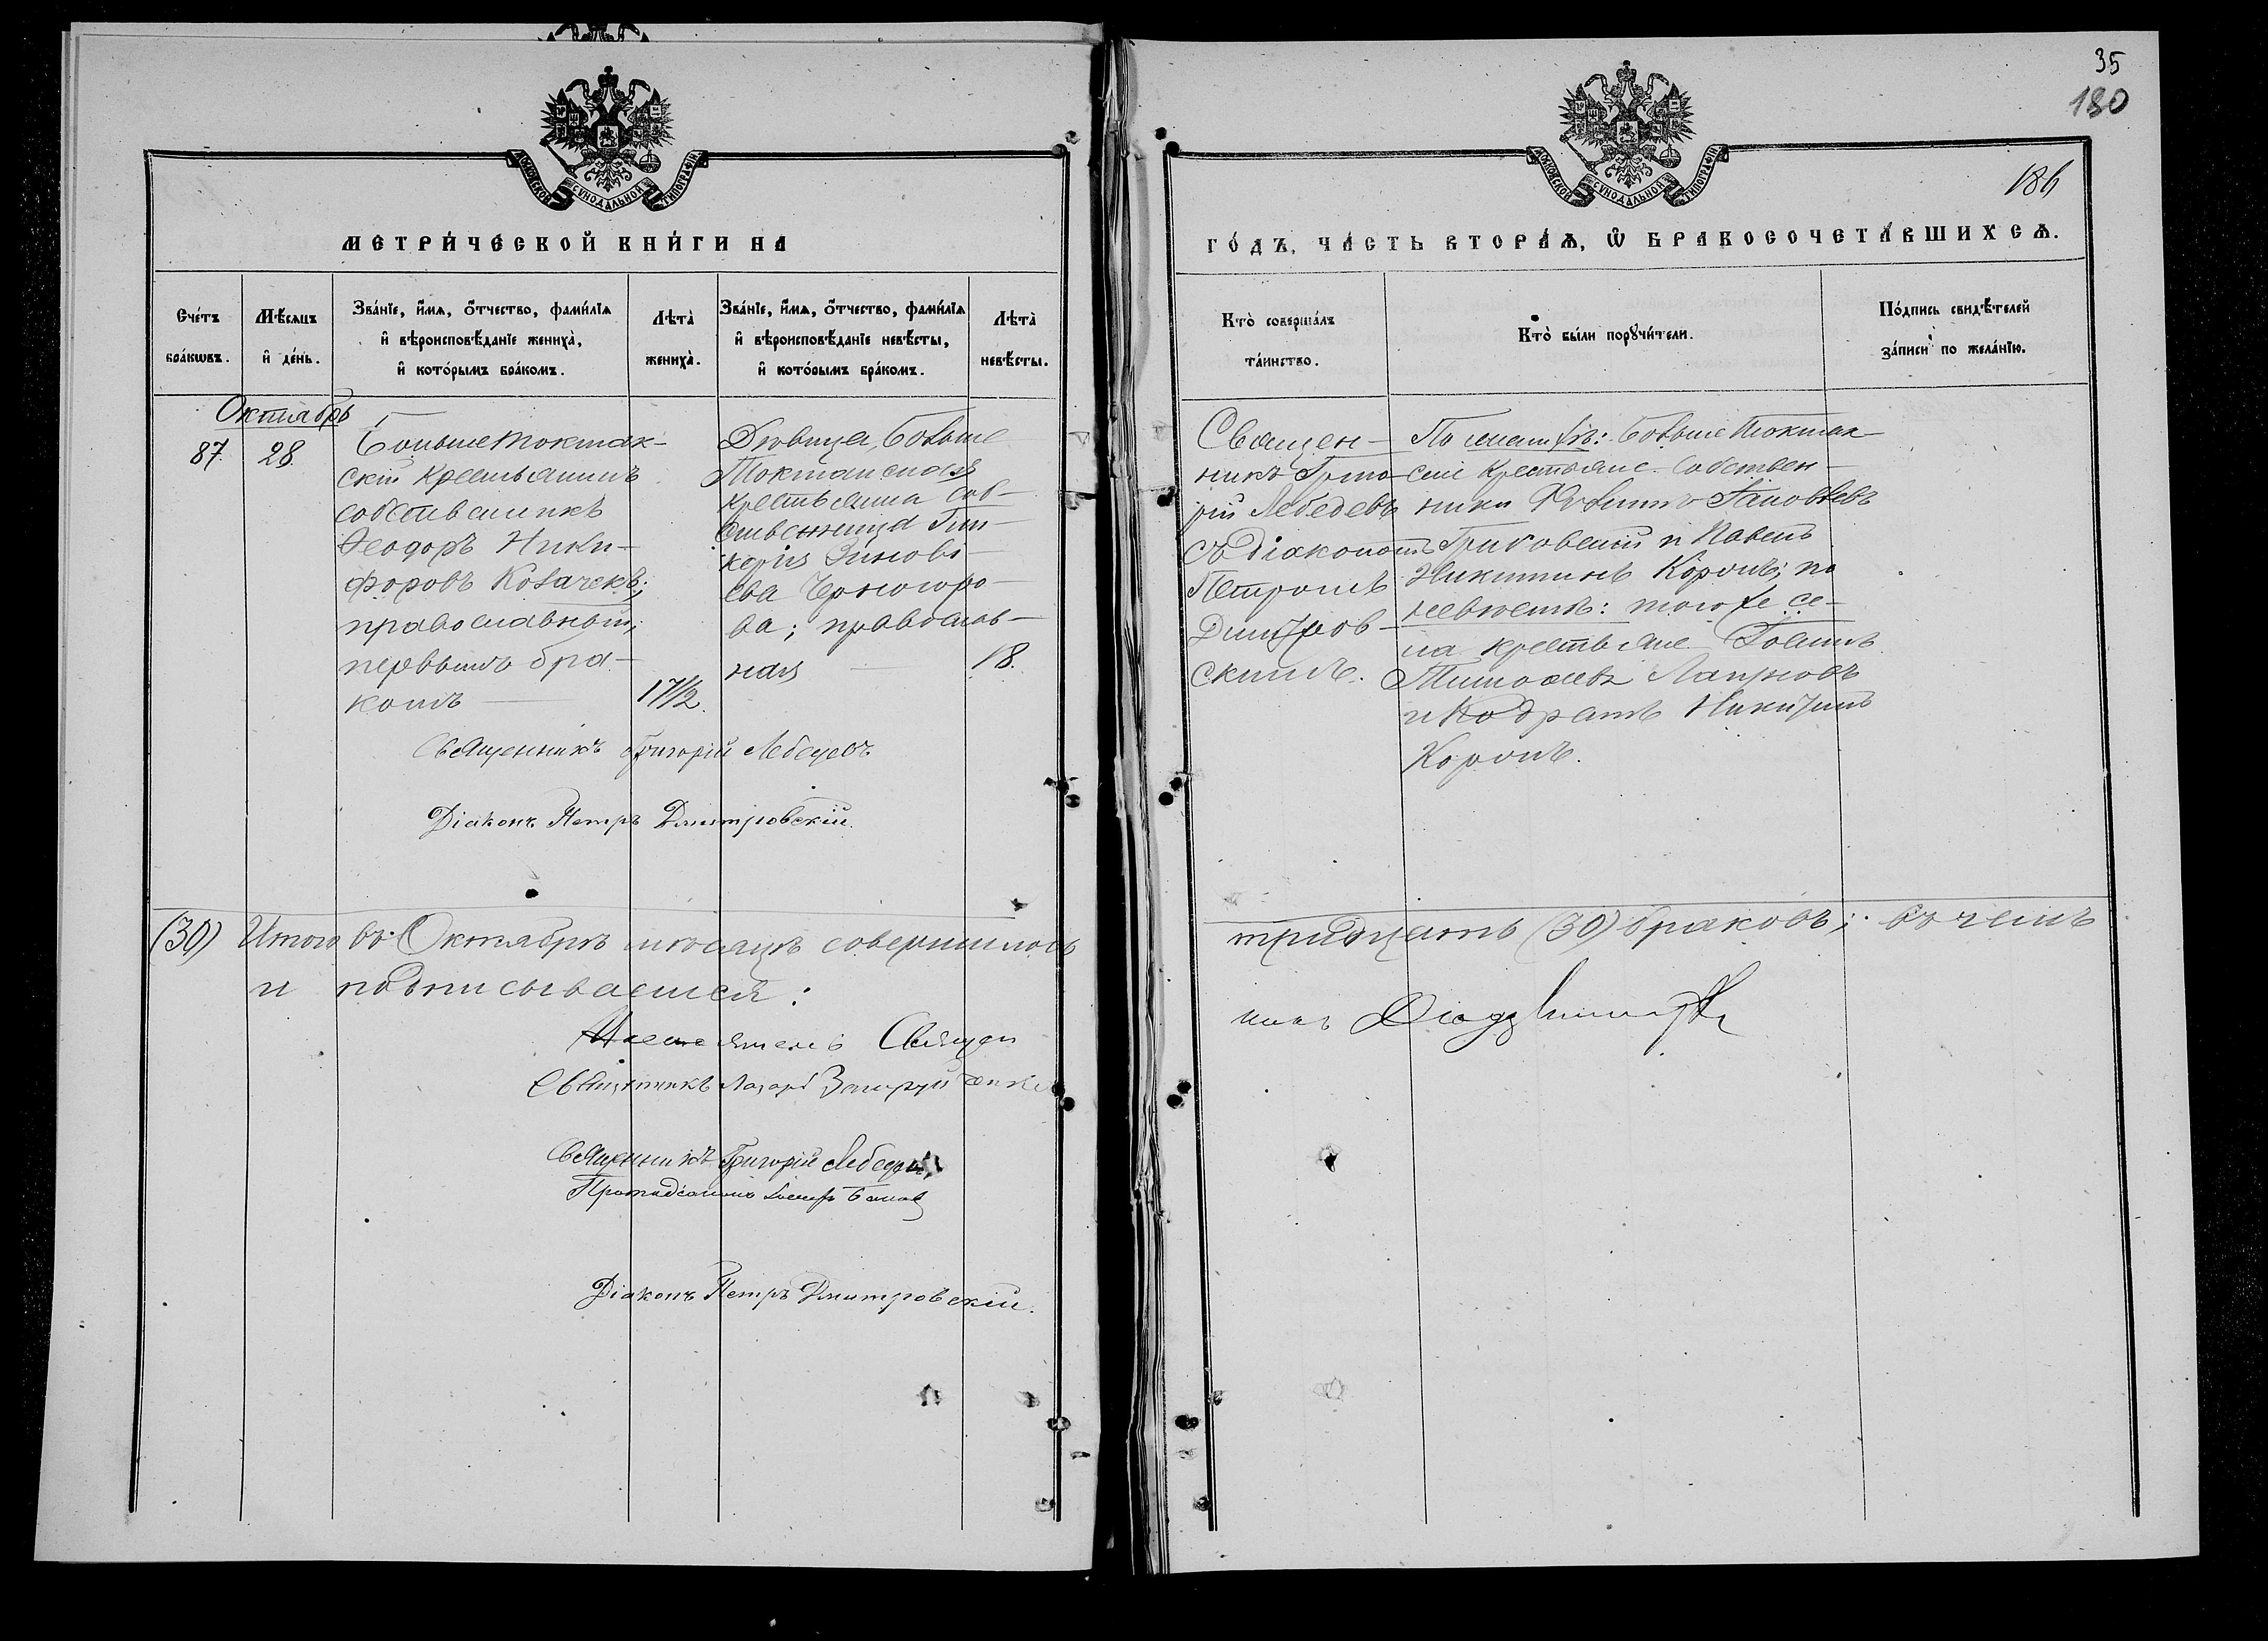 МОСКОВСКОЙ СѴНОДАЛЬНОЙ ТИПОГРАФІИ
МЕТРИ́ЧЕСКОЙ КНИ́ГИ НА
Сче́тъ бра́кѡвъ.
Мѣ́сяцъ и҆ де́нь.
Зва́нїе, и҆́мя, ѻ҆́тчество, фами́лїя
и҆ вѣроисповѣ́данїе жениха̀,
и҆ кото́рымъ бра́комъ.
Лѣта̀ жениха̀.
Зва́нїе, и҆́мя, ѻ҆́тчество, фами́лїя
и҆ вѣроисповѣ́данїе невѣ́сты,
и҆ кото́рымъ бра́комъ.
Лѣта̀ невѣ́сты.
Октябрь
87.
28.
Больше Токмак-
скій крестьянинъ
собственникъ
Ѳеодоръ Ники-
форовъ Козачекъ;
православный,
первымъ бра-
комъ
17 1/2.
Дѣвица, Больше
Токмакская
крестьянка соб-
ственница Гли-
керія Зиновь-
ева Черногоро-
ва; православ-
ная
18.
Священникъ Григорій Лебедевъ.
Діаконъ Петръ Дмитровскій.
(30) Итого въ Октябрѣ мѣсяцѣ совершилось
и подписываемся:
Настоятель Священ
Священникъ Лазарь
Священникъ Григорій Лебедевъ
Діаконъ Петръ Дмитровскій.
35
180
МОСКОВСКОЙ СѴНОДАЛЬНОЙ ТИПОГРАФІИ
186
ГО́ДЪ, ЧА́СТЬ ВТОРА́Ѧ, Ѡ҆ БРАКОСОЧЕТА́ВШИХСѦ.
Кто̀ соверша́лъ
та́инство.
Кто̀ бы́ли порꙋчи́тели.
По́дпись свидѣ́телей
за́писи по жела́нїю.
Священ-
никъ Григо-
рій Лебедевъ
съ діакономъ
Петромъ
Дмитров-
скимъ.
По женихѣ: Больше Токмак-
скіе крестьяне собствен-
ники
и Павелъ
Никитинъ Король; по
невѣстѣ: того же се-
ла крестьяне
и Кодратъ Никитинъ
Король.
тридцать (30) браковъ; въ чемъ
никъ